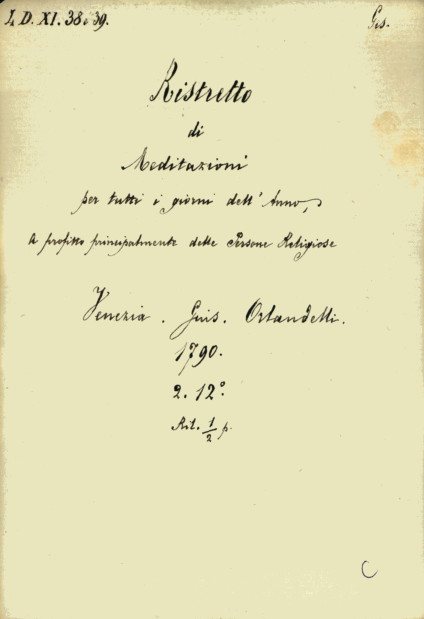 L. D. XI. 38 e 39. Ges.
Ristretto
di
Meditazioni
per tutti i giorni dell' Anno,
a profitto principalmente delle Persone Religiose
Venezia. Gius. Orlandelli.
1790.
2. 12°.
Ril. 1/2 p.
C